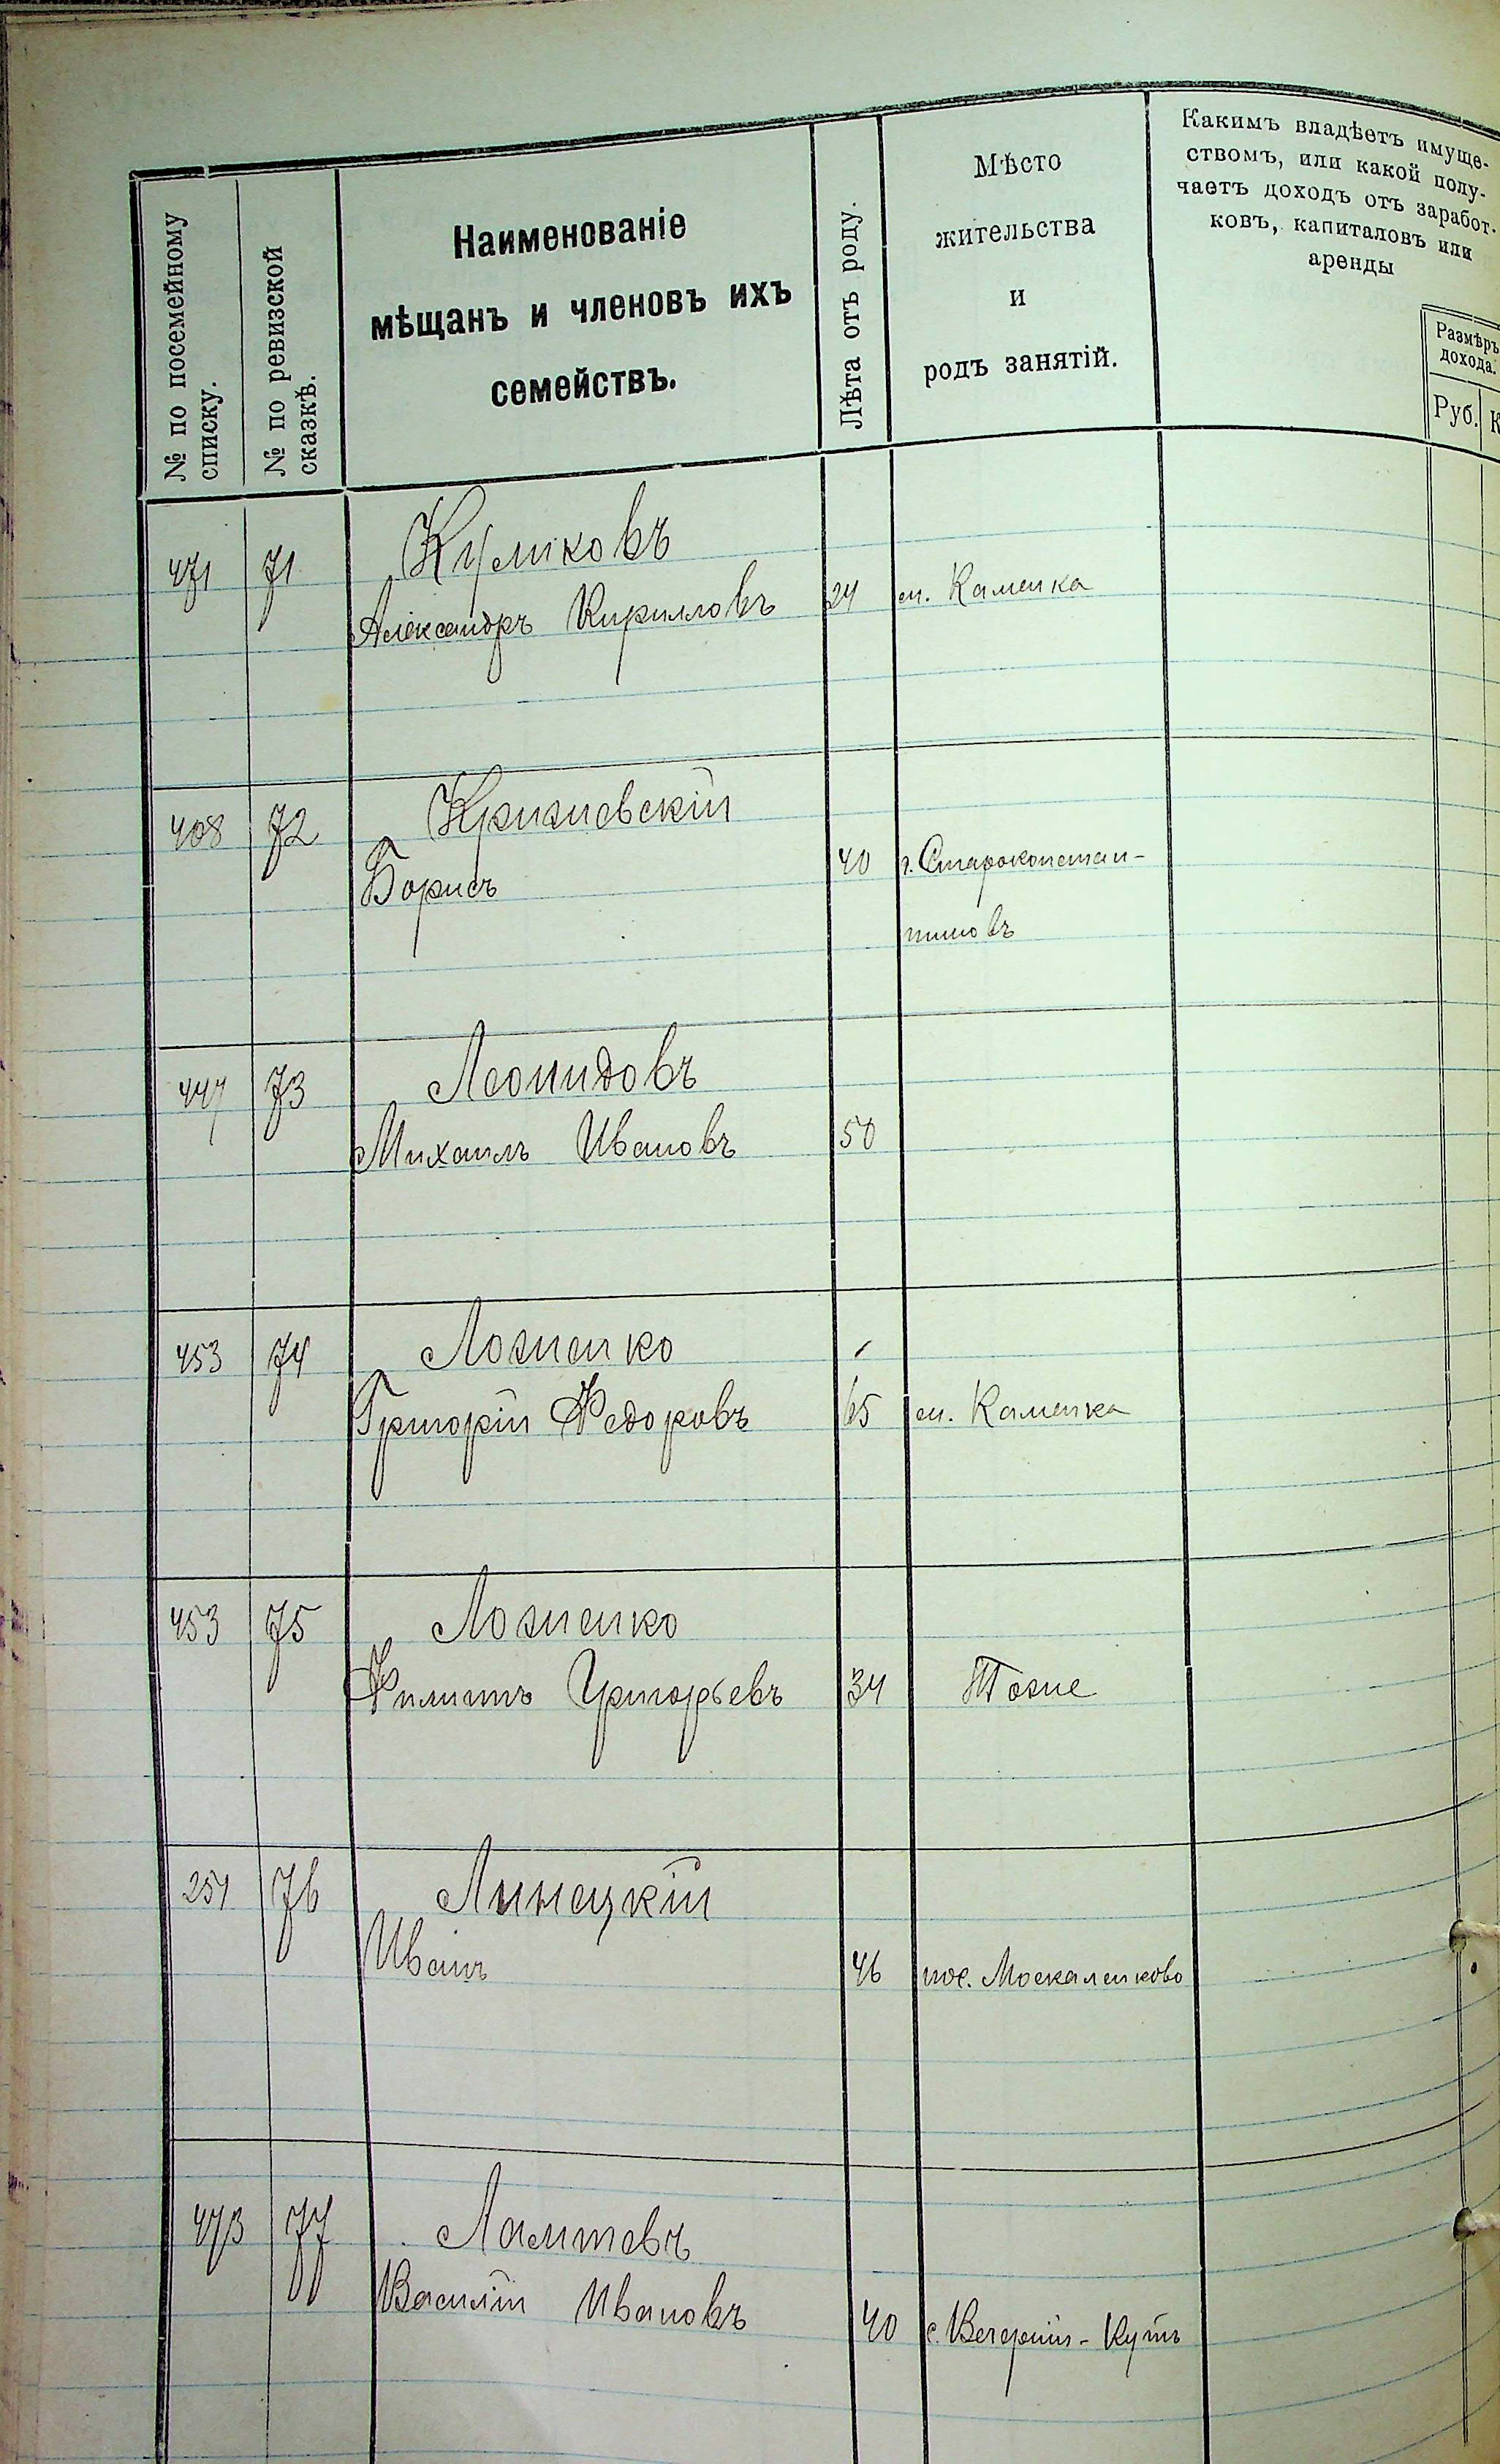 № по посемейному
списку.
№ по ревизской
сказкѣ.
Наименованіе
мѣщанъ и членовъ ихъ
семействъ.
Лѣта отъ роду.
Мѣсто
жительства
и
родъ занятій.
Какимъ владѣетъ имуще-
ствомъ, или какой полу-
чаетъ доходъ отъ заработ-
ковъ, капиталовъ или
аренды
Размѣръ
дохода.
Руб. К
471 71 Куликовъ
Александръ Кирилловъ 24 м. Каменка
408 72
Борисъ 40 г. Староконстан-
тиновъ
447 73 Леонидовъ
Михаилъ Ивановъ 50
453 74 Лозенко
Григорій Федоровъ 65 м. Каменка
453 75 Лозенко
Филиппъ Григорьевъ 34 Тоже
251 76 Линецкій
Иванъ 46 пос. Москаленково
473 77 Лаптевъ
Василій Ивановъ 40 с. Вечерній-Кутъ